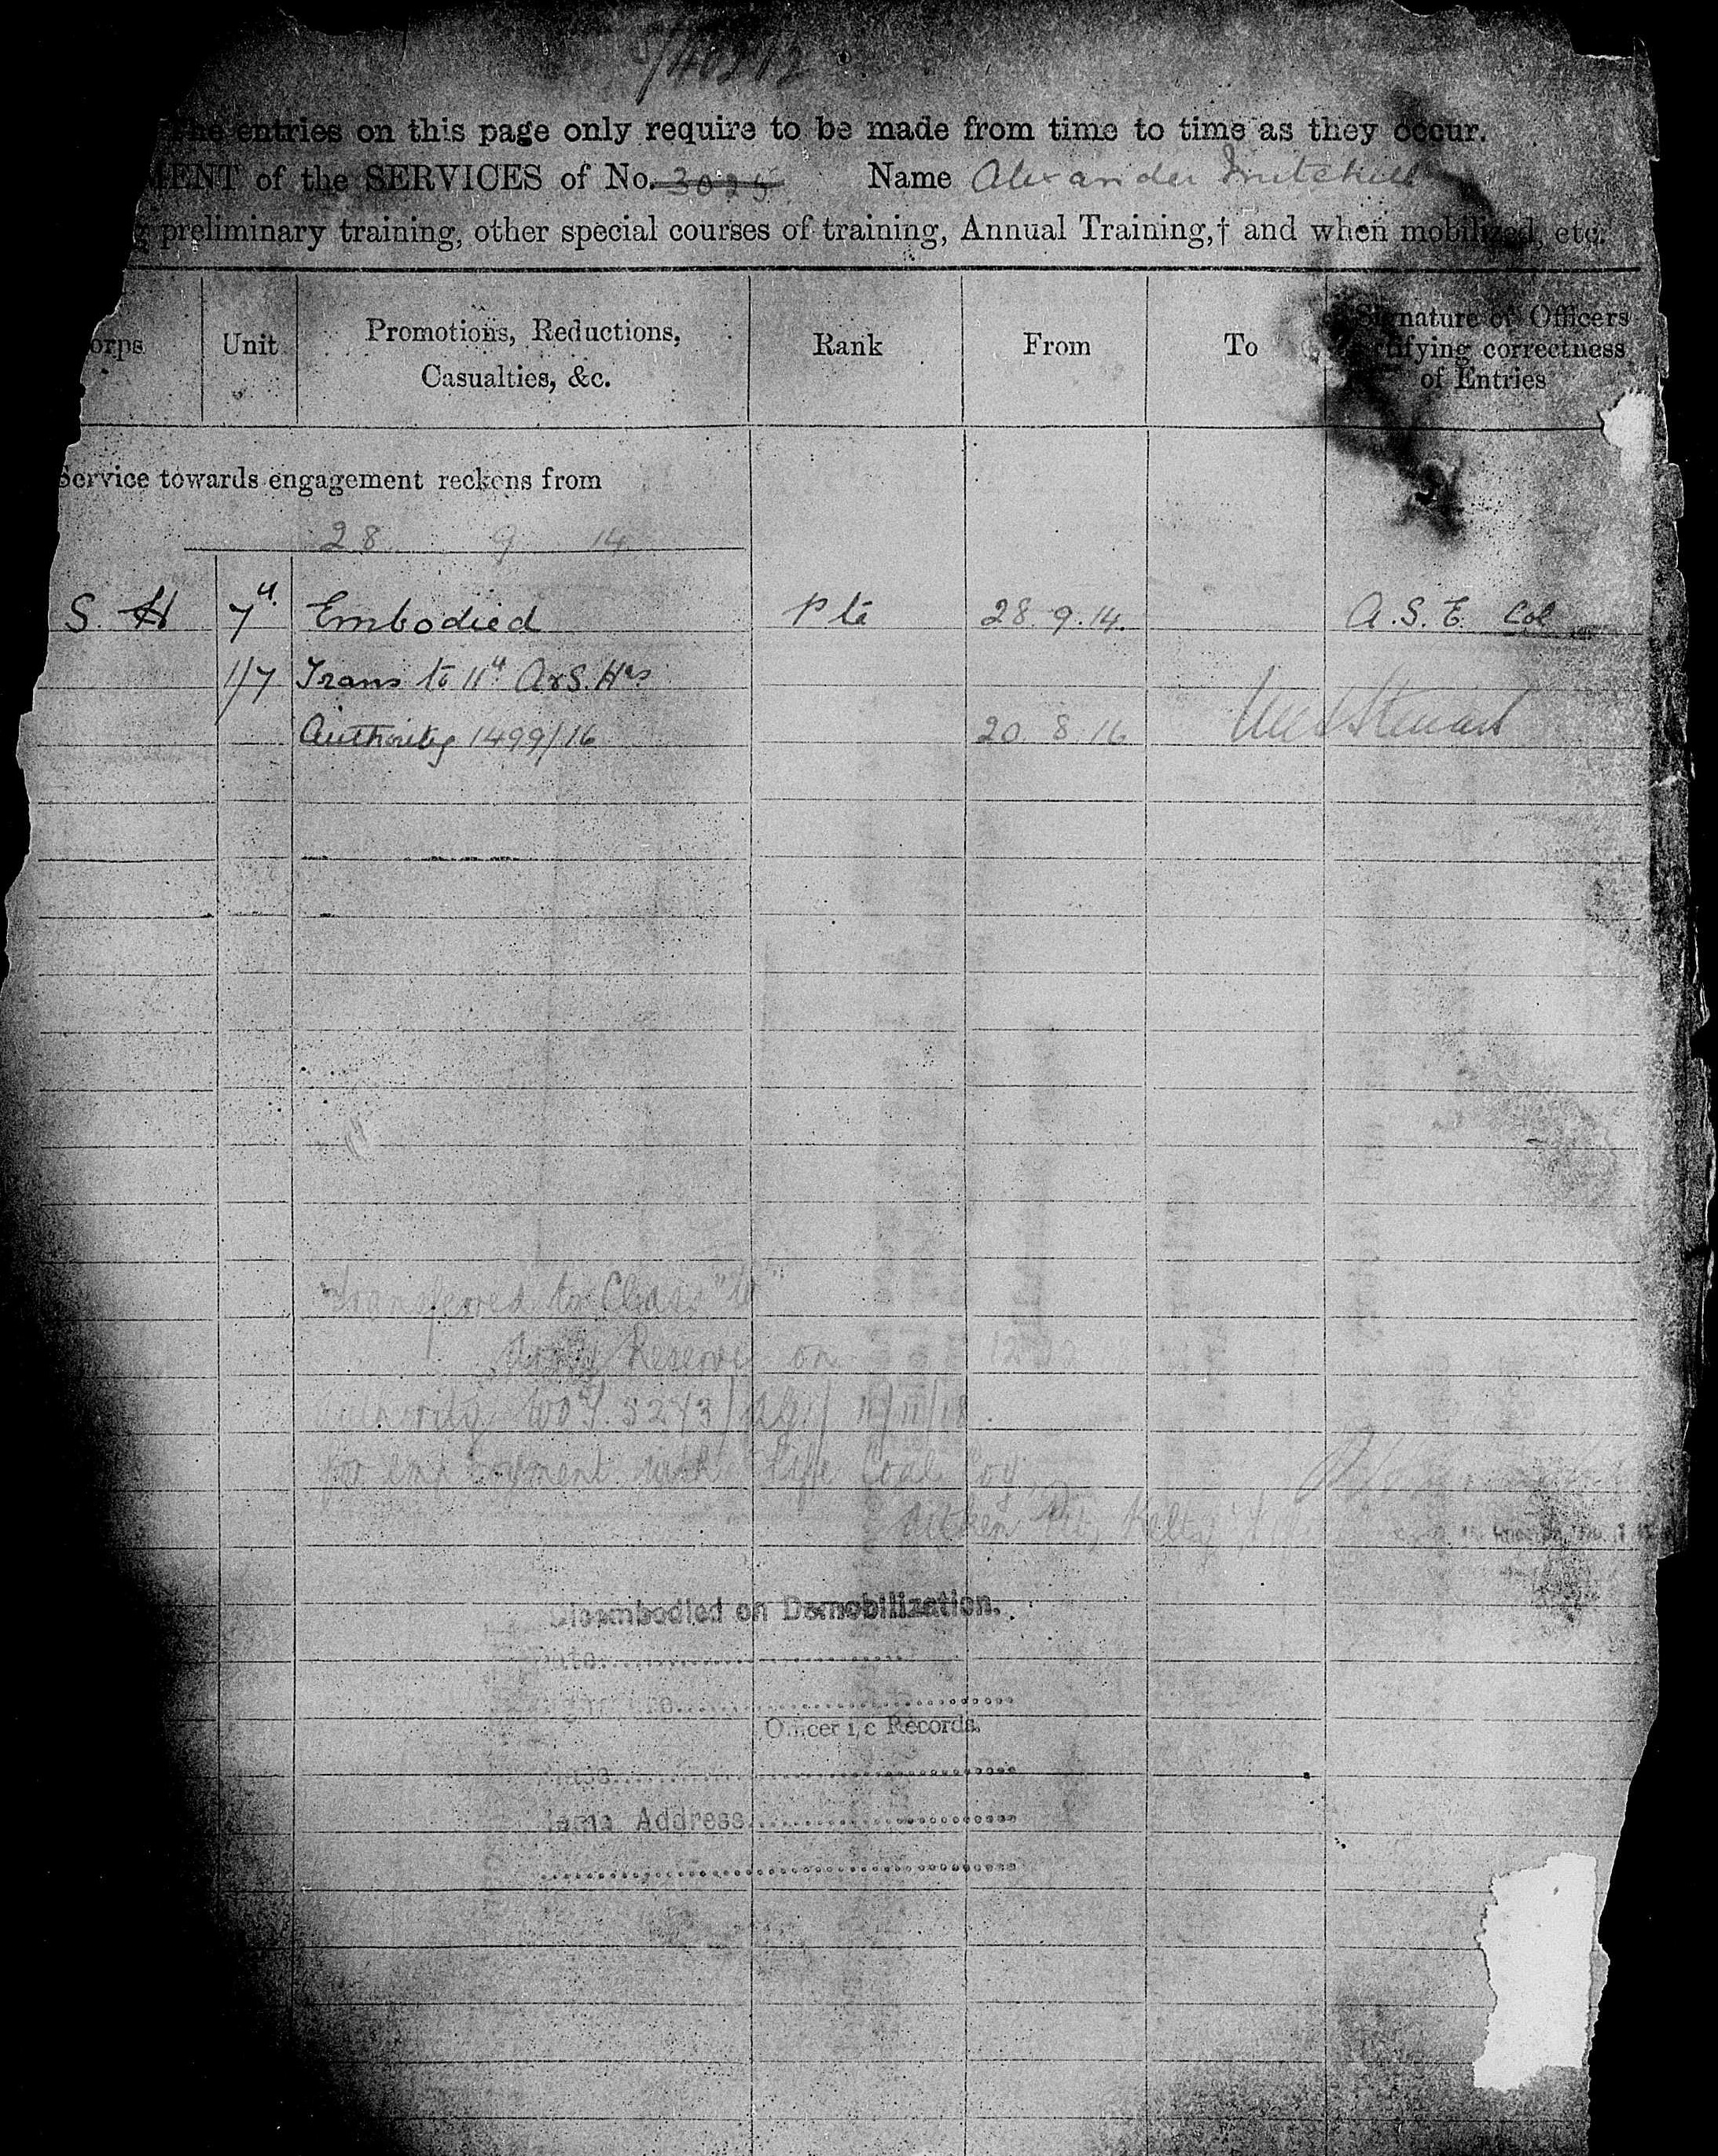 The entries on this page only require to be made from time to time as they occur.
MENT of the SERVICES of No. 3025 Name Alexander Mitchell
g preliminary training, other special courses of training, Annual Training,† and when mobilized, etc.
orps Unit Promotions, Reductions, Casualties, &c. Rank From To Signature of Officers
tifying correctness
of Entries
Service towards engagement reckons from
28 9 14
S. H 7th Embodied Pte 28.9.14. A.S.E. Col
1/7 Trans to 11th A&S. Hrs
Authority 1499/16 20.8.16 Stewart
Transferred to Class "W"
Army Reserve on 12
Authority W.O. 5243/ 11/11/18.
for employment with Fife Coal Coy
Aitken Pit, Kelty
Disembodied on Demobilization.
Date
Officer i/c Records.
Address